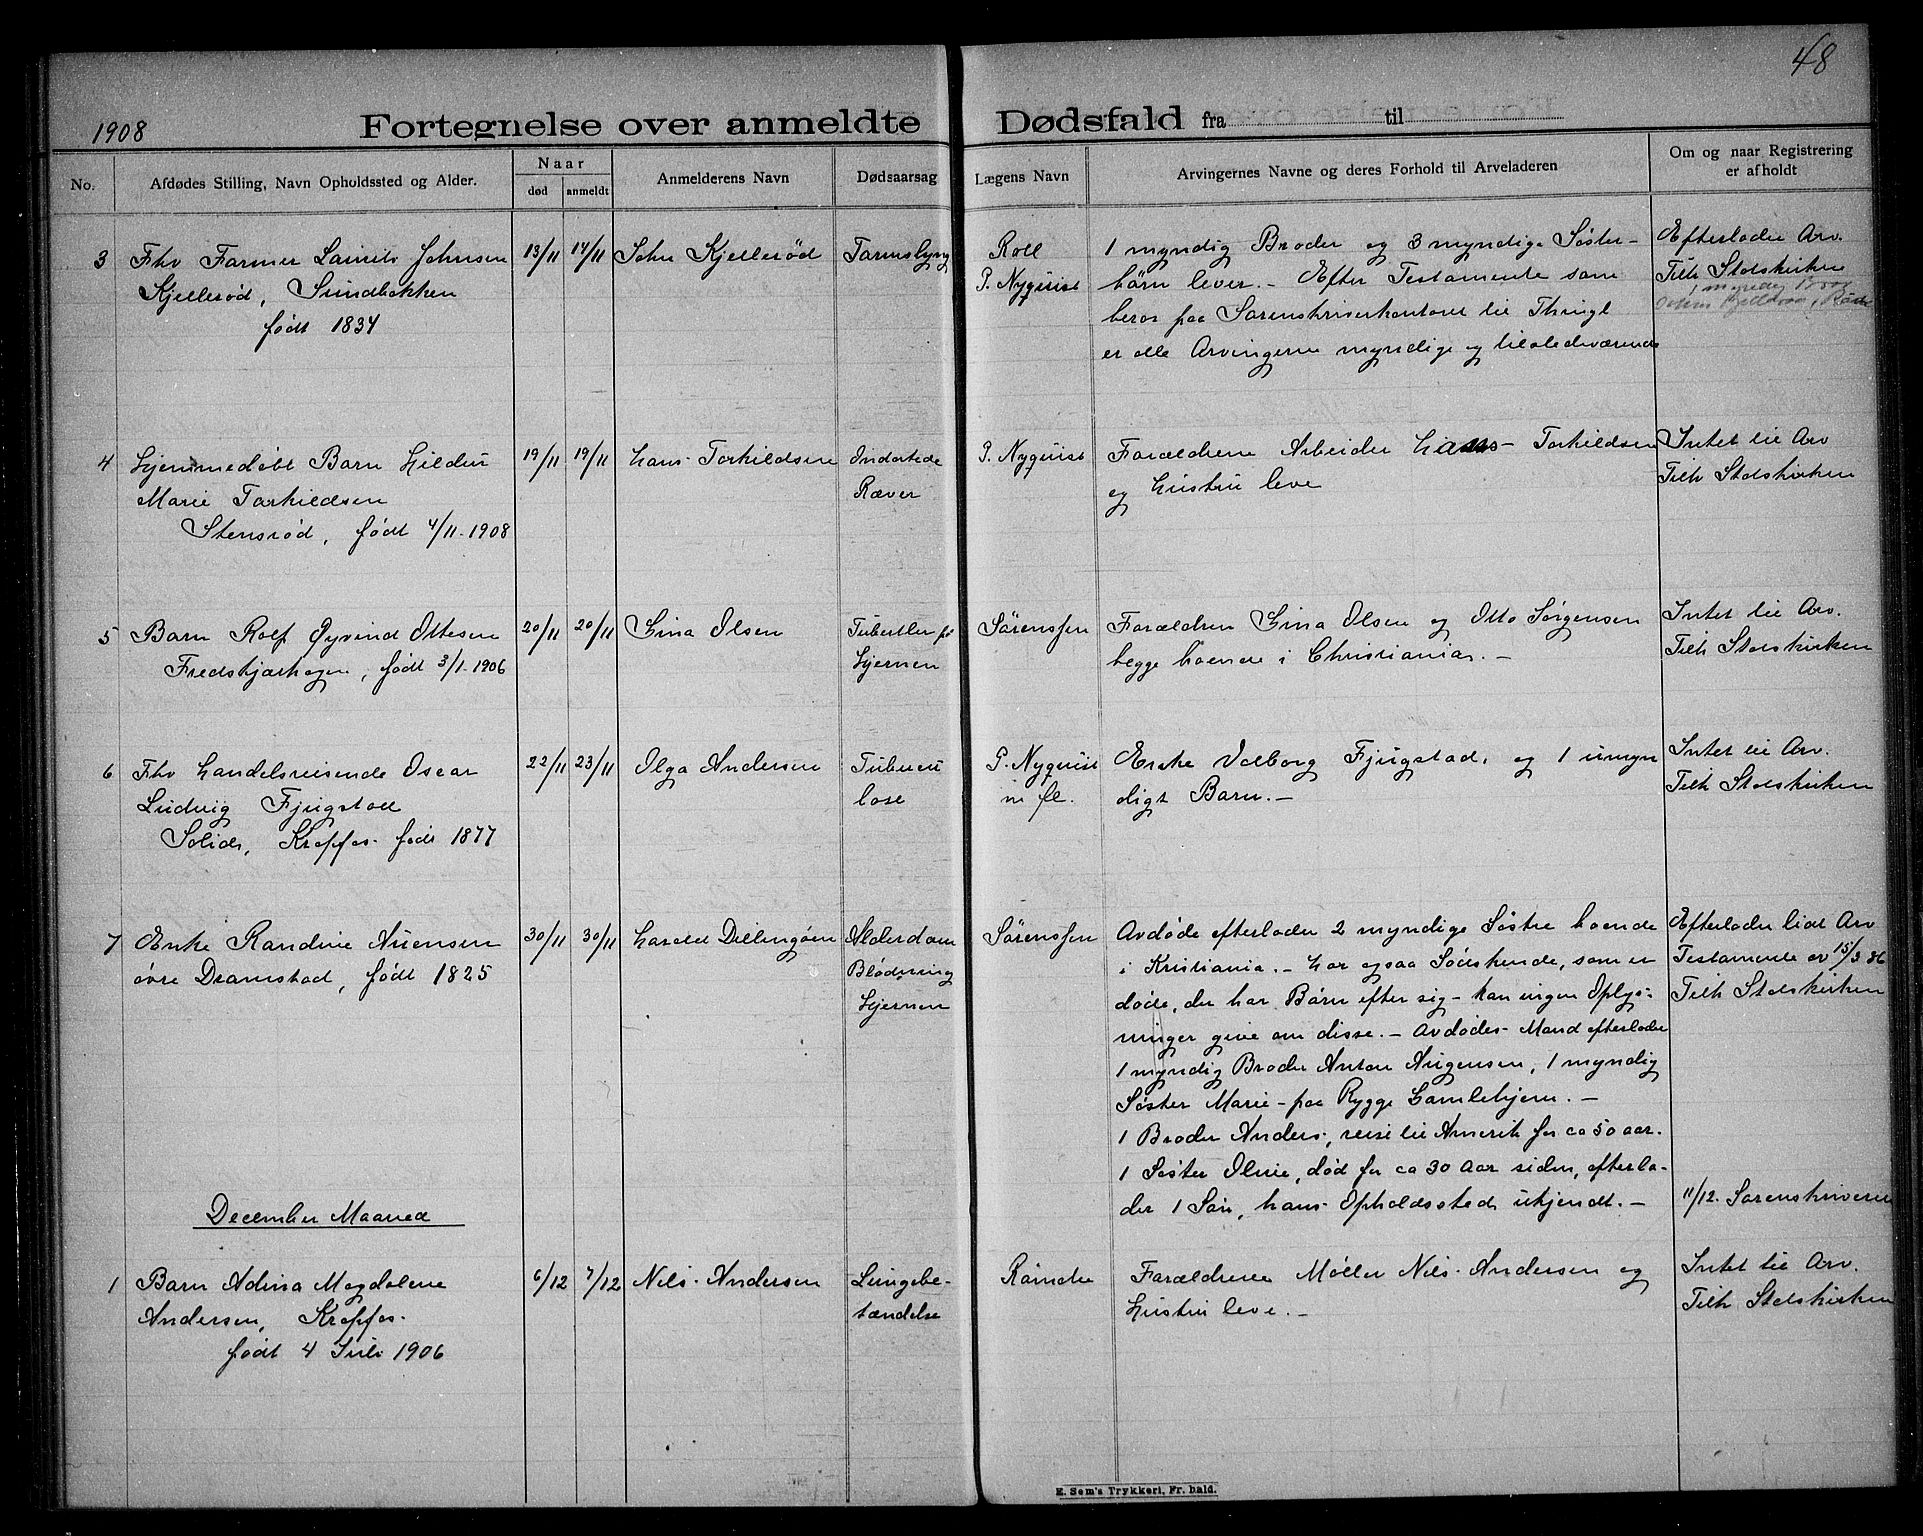 48
1908
Fortegnelse over anmeldte Dødsfald fra til
No.
Afdødes Stilling, Navn Opholdssted og Alder.
Naar
død
anmeldt
Anmelderens Navn
Dødsaarsag
Lægens Navn
Arvingernes Navne og deres Forhold til Arveladeren
Om og naar Registrering
er afholdt
3
Fhv Farmer Laurits Johnsen
Kjellerød, Sundbakken
født 1834
13/11
14/11
John Kjellerød
Tarmslyng
Roll
P. Nyquist
1 myndig Broder og 3 myndige Søster-
børn lever. - Efter Testamente som
beror paa Sorenskriverkontoret til Thingl
er alle Arvingerne myndige og tilstedeværende
Efterlader Arv.
Tilh Statskirken
1 myndig Broder
4
Hjemmedøbt Barn Hildur
Marie Torkildsen
Stensrød, født 4/11-1908
19/11
19/11
Hans Torkildsen
Indartede
Kræver
P. Nyquist
Forældrene Arbeider Hans Torkildsen
og Hustru leve
Intet til Arv
Tilh Statskirken
5
Barn Rolf Øyvind Ottesen
Fredskjærhagen, født 3/1-1906
20/11
20/11
Gina Olsen
Tuberkler på
Hjernen
Sørenssen
Forældren Gina Olsen og Otto Jørgensen
begge boende i Christiania. -
Intet til Arv.
Tilh Statskirken
6
Fhv Handelsreisende Oscar
Ludvig Fjugstad
Solide, Kropfos. født 1877
22/11
23/11
Olga Andersen
Tuberku
lose
P. Nyquist
m fl.
Enke Valborg Fjugstad, og 1 umyn
digt Barn. -
Intet til Arv.
Tilh Statskirken
7
Enke Randine Auensen
øvre Dramstad, født 1825
30/11
30/11
Harald Dillingøen
Alderdom
Blødning
Hjernen
Sørenssen
Avdøde efterlader 2 myndige Søstre boende
i Kristiania. - Har ogsaa Sødskende, som er
døde, der har Børn efter sig - kan ingen Oplys-
ninger give om disse. - Avdødes Mand efterlader
1 myndig Broder Anton Augensen, 1 myndig
Søster Marie - paa Rygge Gamlehjem. -
1 Broder Anders, reist til Amerik for ca 50 aar.
1 Søster Oline, død for ca 30 aar siden, efterla-
der 1 Søn, hans Opholdssted ukjendt. -
Efterlader lidt Arv
Testamente av 15/3 86
Tilh Statskirken
11/12. Sorenskriveren
December Maaned
1
Barn Adina Magdalene
Andersen, Kropfos.
født 4 Juli 1906
6/12
7/12
Nils Andersen
Lungebe-
tændelse
Rømcke
Forældrene Møller Nils Andersen og
Hustru leve. -
Intet til Arv.
Tilh Statskirken
E. Sem's Trykkeri, Fr.hald.